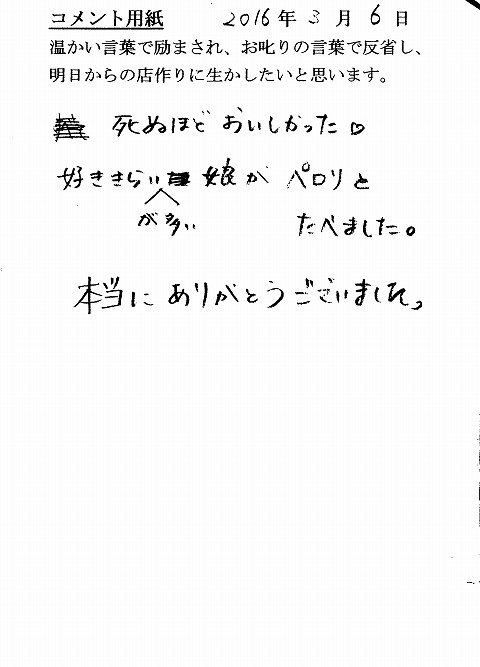 コメント用紙 2016年3月6日
温かい言葉で励まされ、お叱りの言葉で反省し、
明日からの店作りに生かしたいと思います。
死ぬほど おいしかった♡
好ききらいが多い娘が ペロリと
たべました。
本当に ありがとうございました。